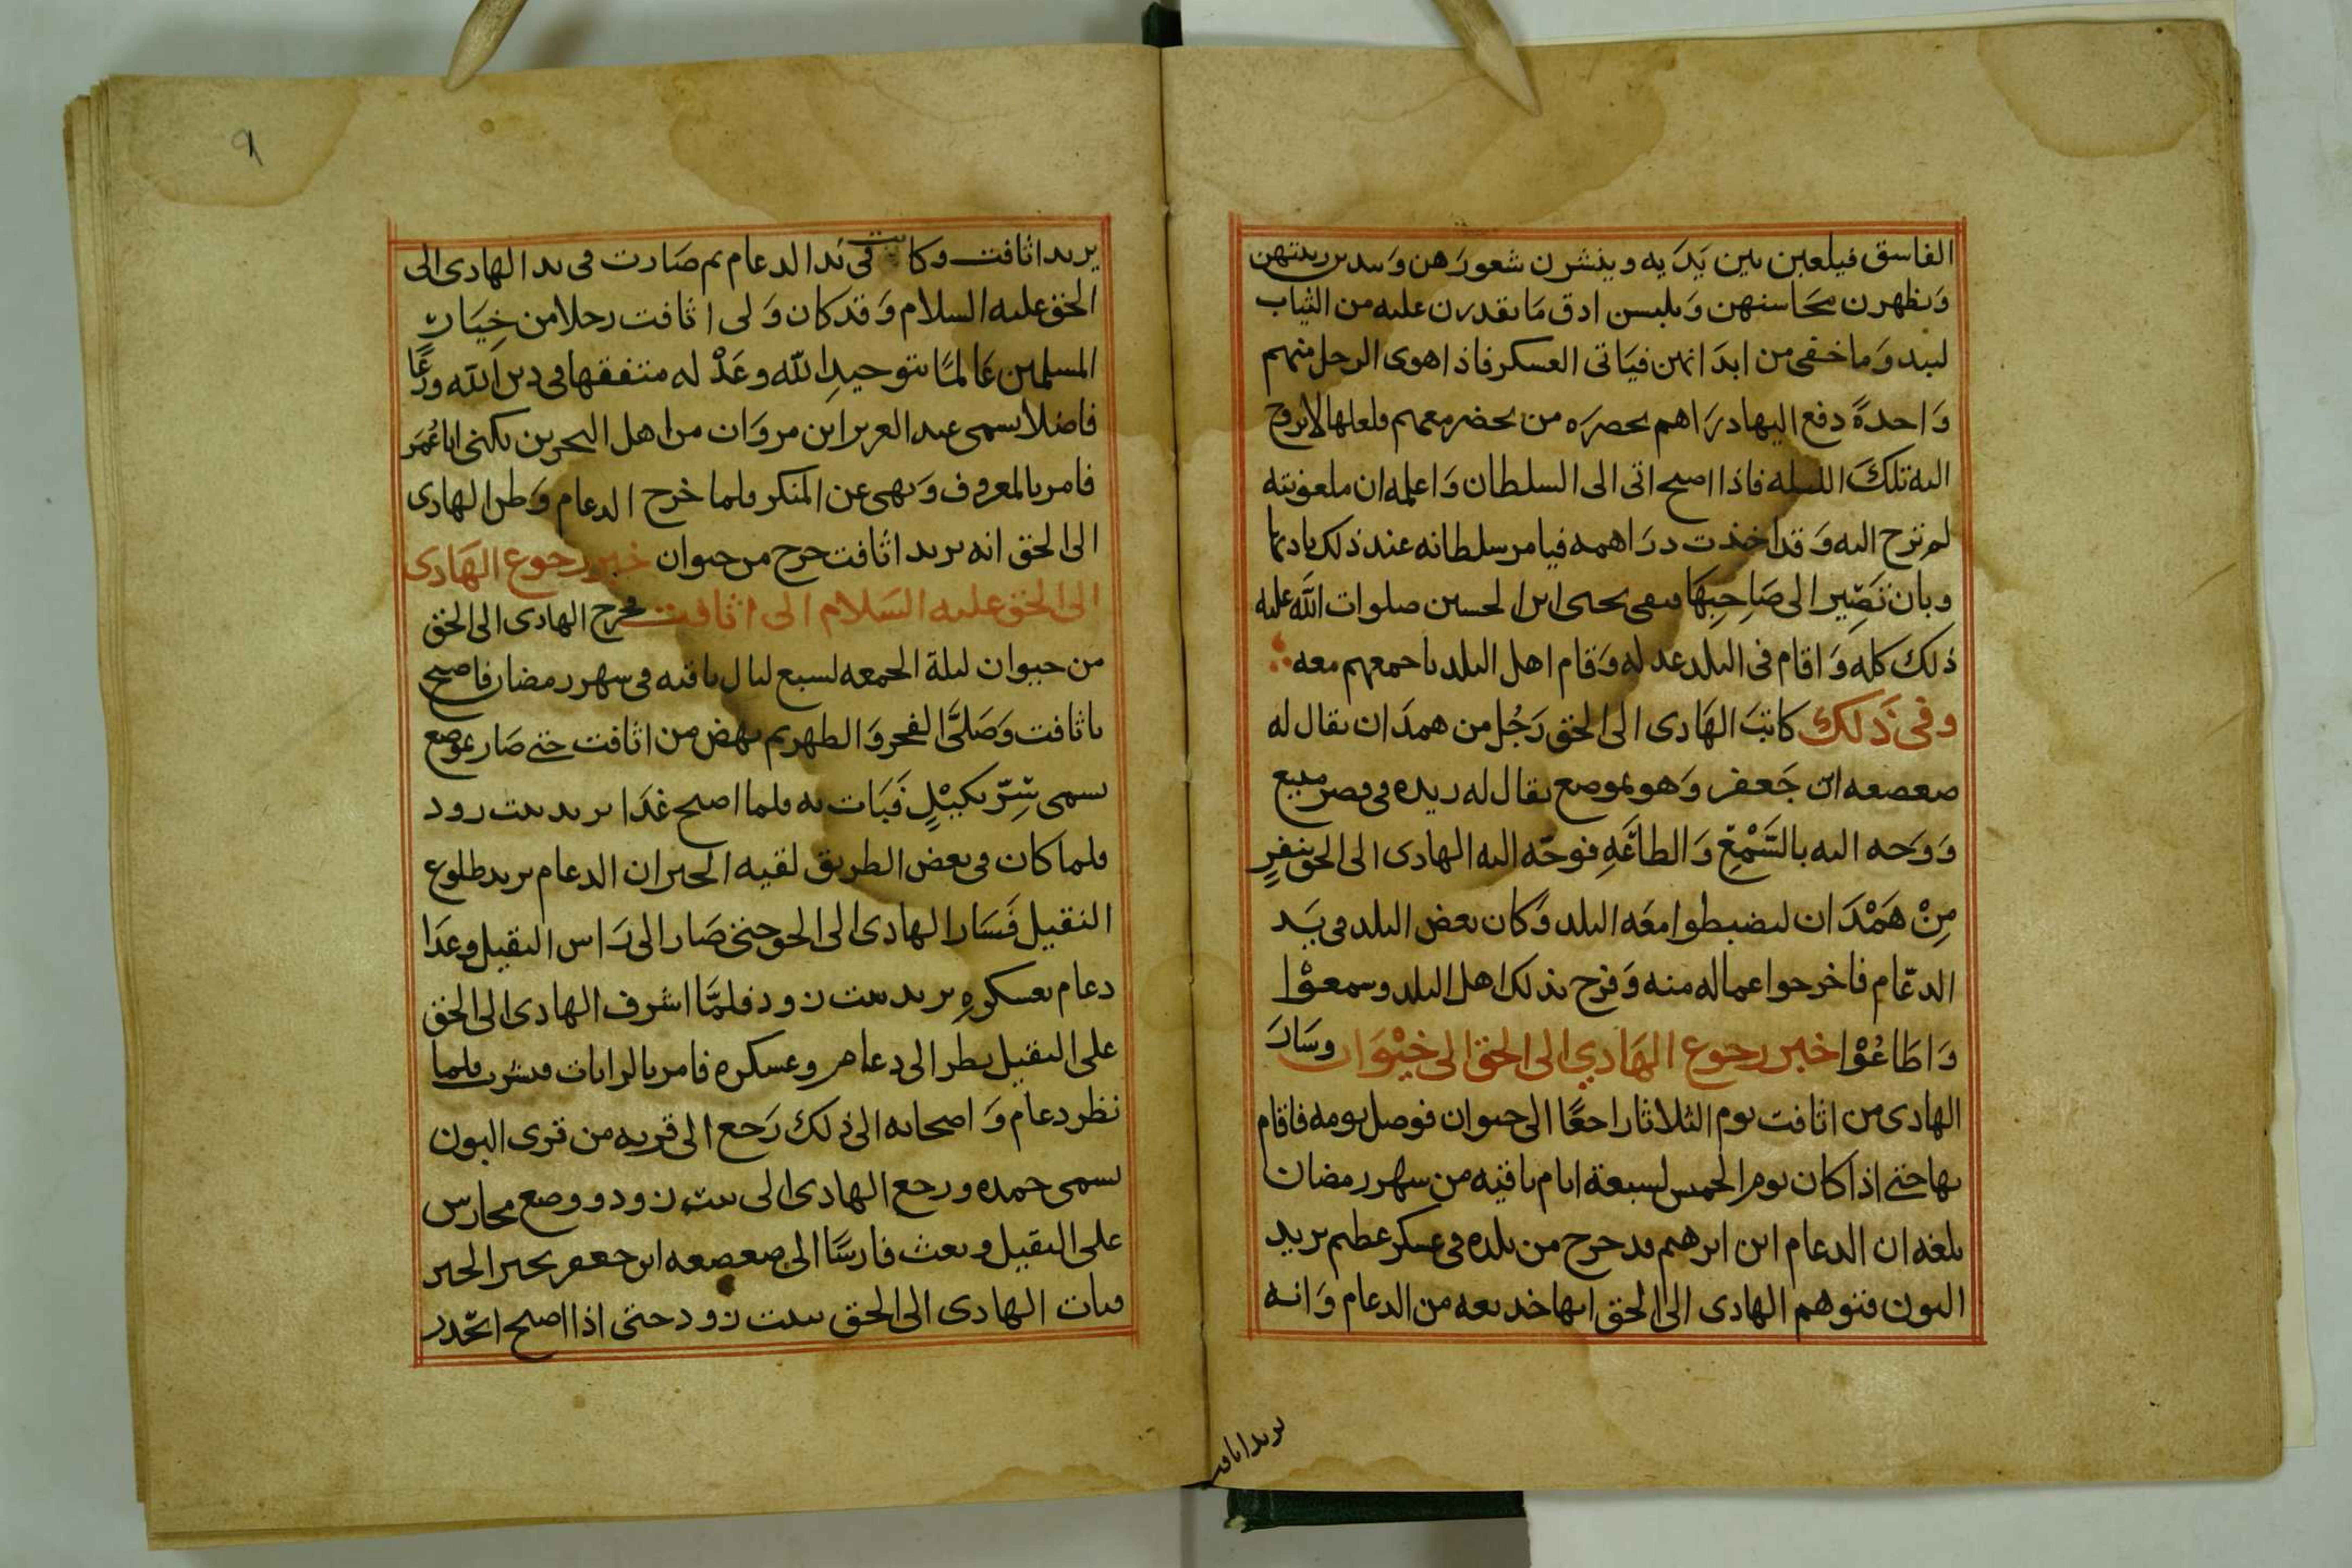 الفاسق فيلعبن بين يديه وينشرن شعورهن ويبدين زينتهن
ويظهرن محاسنهن ويلبسن ادق ما يقدرن عليه من الثياب
ليبد وما خفى من ابدانهن فياتى العسكر فاذا اهوى الرجل منهم
واحدةً دفع اليها دراهم بحضره من يحضر معهم ولعلها لا تروح
اليه تلك الليله فاذا اصبح اتى الى السلطان واعلمه ان ملعونته
لم تزح اليه وقد اخذت دراهمه فيامر سلطانه عند ذلك بادبها
وبان تصّير الى صَاحِبِهَا فنفى يحيى ابن الحسين صلوات الله عليه
ذلك كله واقام فى البلد عدله وقام اهل البلد باجمعهم معه
وفى ذلك كاتبَ الهَادى الى الحق رَجُل من همدَان يقال له
صعصعه ابن جَعفر وَهو بموضع يقال له ريده فى قصر منيع
وَوَجه اليه بالسَّمْعِ وَالطاعَهِ فوجّه اليه الهادى الى الحق بنفرٍ
مِنْ هَمْدَان ليضبطوا معَه البلد وَكان بعض البلد فى يَد
الدعّام فاخرجوا عماله منه وَفرح بذلك اهل البلد وسمعوْا
وَاطَاعُوْا خبر رجوع الهَادِي الى الحق الى خيْوَان وسَارَ
الهادى من اثافت يوم الثلاثا راجعًا الى خيوان فوصل يومه فاقام
بها حتى اذا كان يوم الخميس لسبعة ايام باقيه من شهر رمضان
بلغه ان الدعام ابن ابرهيم قد خرج من بلده فى عسكر عظيم يريد
البون فتوهم الهادى الى الحق انها خديعه من الدعام وَانه
يريد اثافت
٩
يريد اثافت وكانت فى يَد الدعام ثم صَارت فى يد الهادى الى
الحق عليه السلام وَقد كان وَلى اثافت رجلا من خِيَار
المسلمين عَالمًا بتوحيدِ الله وعَدْله متفقها فى دين الله ورعًا
فاضلا يسمى عبد العزيز ابن مروَان من اهل البحرين يكنى ابا عُمَر
فامر بالمعروف وَنهى عن المنكر فلما خرج الدعام وَظن الهادى
الى الحق انه يريد اثافت خرج من خيوان خبر رجوع الهَادى
الى الحق عليه السَلام الى اثافت فخرج الهادى الى الحق
من خيوان ليلة الجمعه لسبع ليال باقيه فى شهر رمضان فاصبح
باثافت وَصَلَّى الفجر وَالظهر ثم نهض من اثافت حتى صَار بموضع
يسمى بِئِرّ بكِيْلٍ فَبَات به فلما اصبح غدَا يريد بيت زود
فلما كان فى بعض الطريق لقيه الخبر ان الدعام يريد طلوع
النقيل فَسَار الهادى الى الحق حتى صَار الى رَاس النقيل وغدَا
دعام بعسكرهِ يريد بيت زود فلمَّا اشرف الهادى الى الحق
على النقيل نظر الى دعام وعسكره فامر بالرايات فنشرت فلما
نظر دعام وَاصحابه الى ذلك رَجع الى قريه من قرى البون
يسمى حمده ورجع الهادى الى بيت زود ووضع محارس
على النقيل وبعث فارسًا الى صعصعه ابن جعفر يخبر الخبر
فبات الهادى الى الحق ببيت زود حتى اذا اصبح انحدر